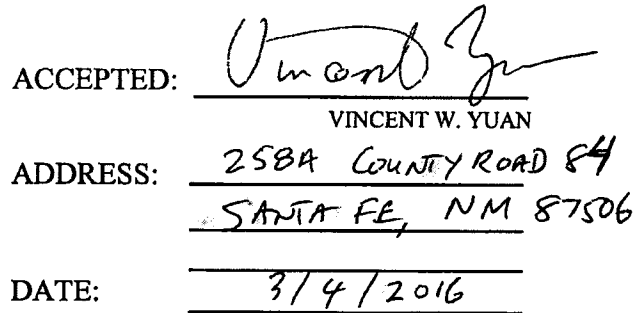 ACCEPTED: Vincent Yuan
VINCENT W. YUAN
ADDRESS: 258A COUNTY ROAD 84
SANTA FE, NM 87506
DATE: 3/4/2016